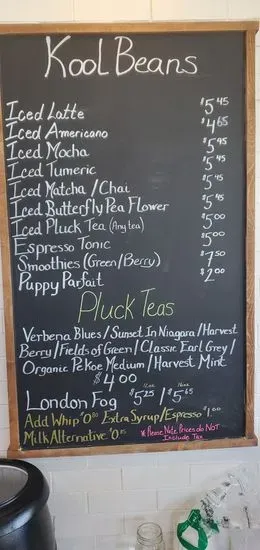 Kool Beans
Iced Latte $5.45
Iced Americano $4.65
Iced Mocha $5.95
Iced Tumeric $5.45
Iced Matcha / Chai $5.45
Iced Butterfly Pea Flower $5.45
Iced Pluck Tea (Any tea) $5.00
Espresso Tonic $5.00
Smoothies (Green/Berry) $7.50
Puppy Parfait $2.00
Pluck Teas
Verbena Blues / Sunset In Niagara / Harvest
Berry / Fields of Green / Classic Earl Grey /
Organic Pekoe Medium / Harvest Mint
$4.00
London Fog 12oz $5.25 / 16oz $5.65
Add Whip $0.80 Extra Syrup/Espresso $1.00
Milk Alternative $0.85
* Please Note Prices do NOT
Include Tax